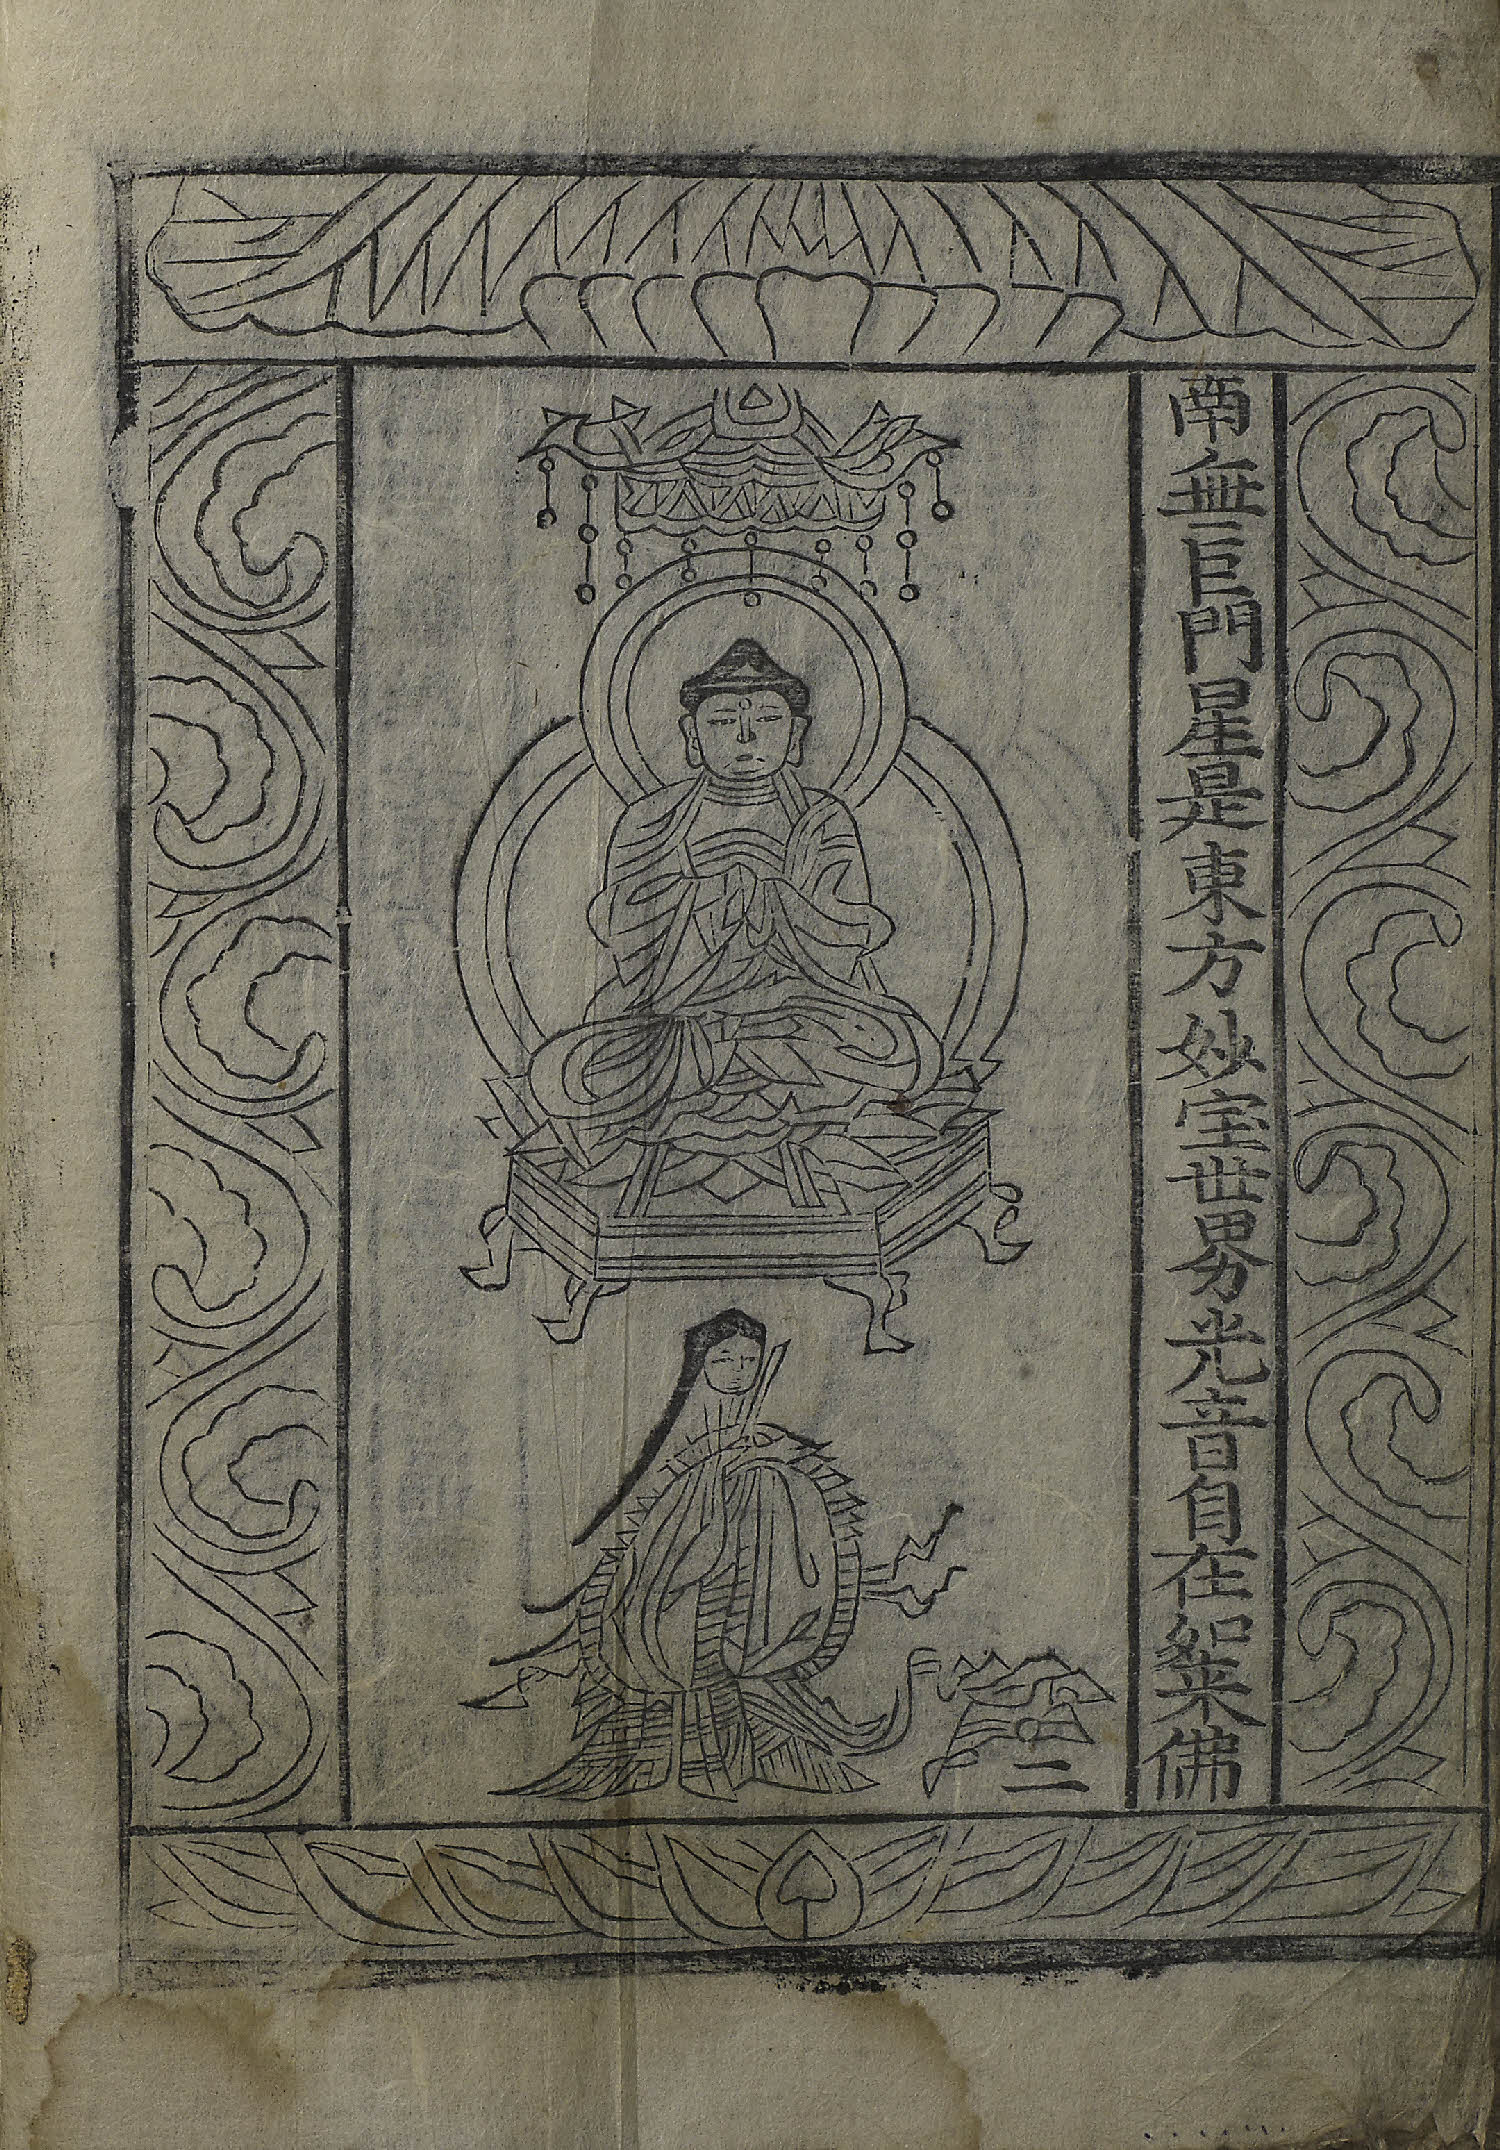 南無巨門星是東方妙宝世界光音自在如来佛
二